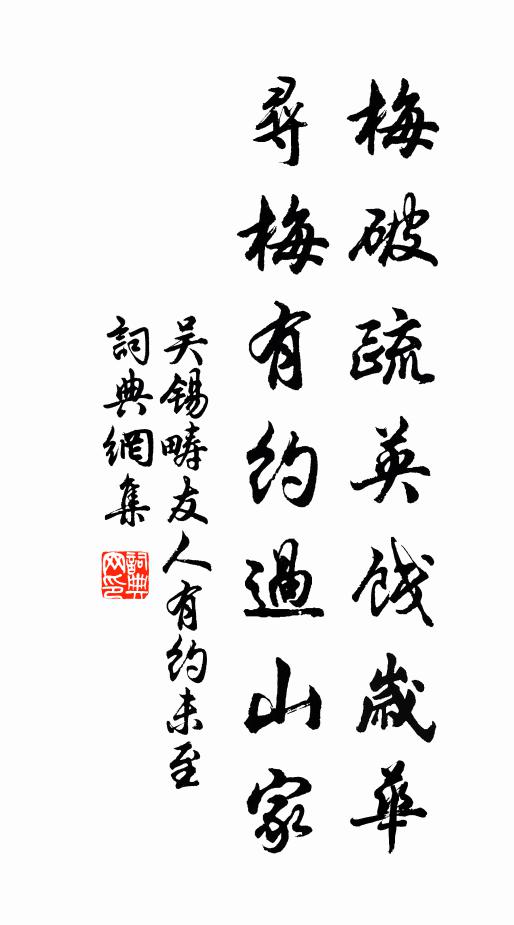 梅破疏英餞歲華
尋梅有約過山家
吳錫疇友人有約未至
詞典網集
詞典網印